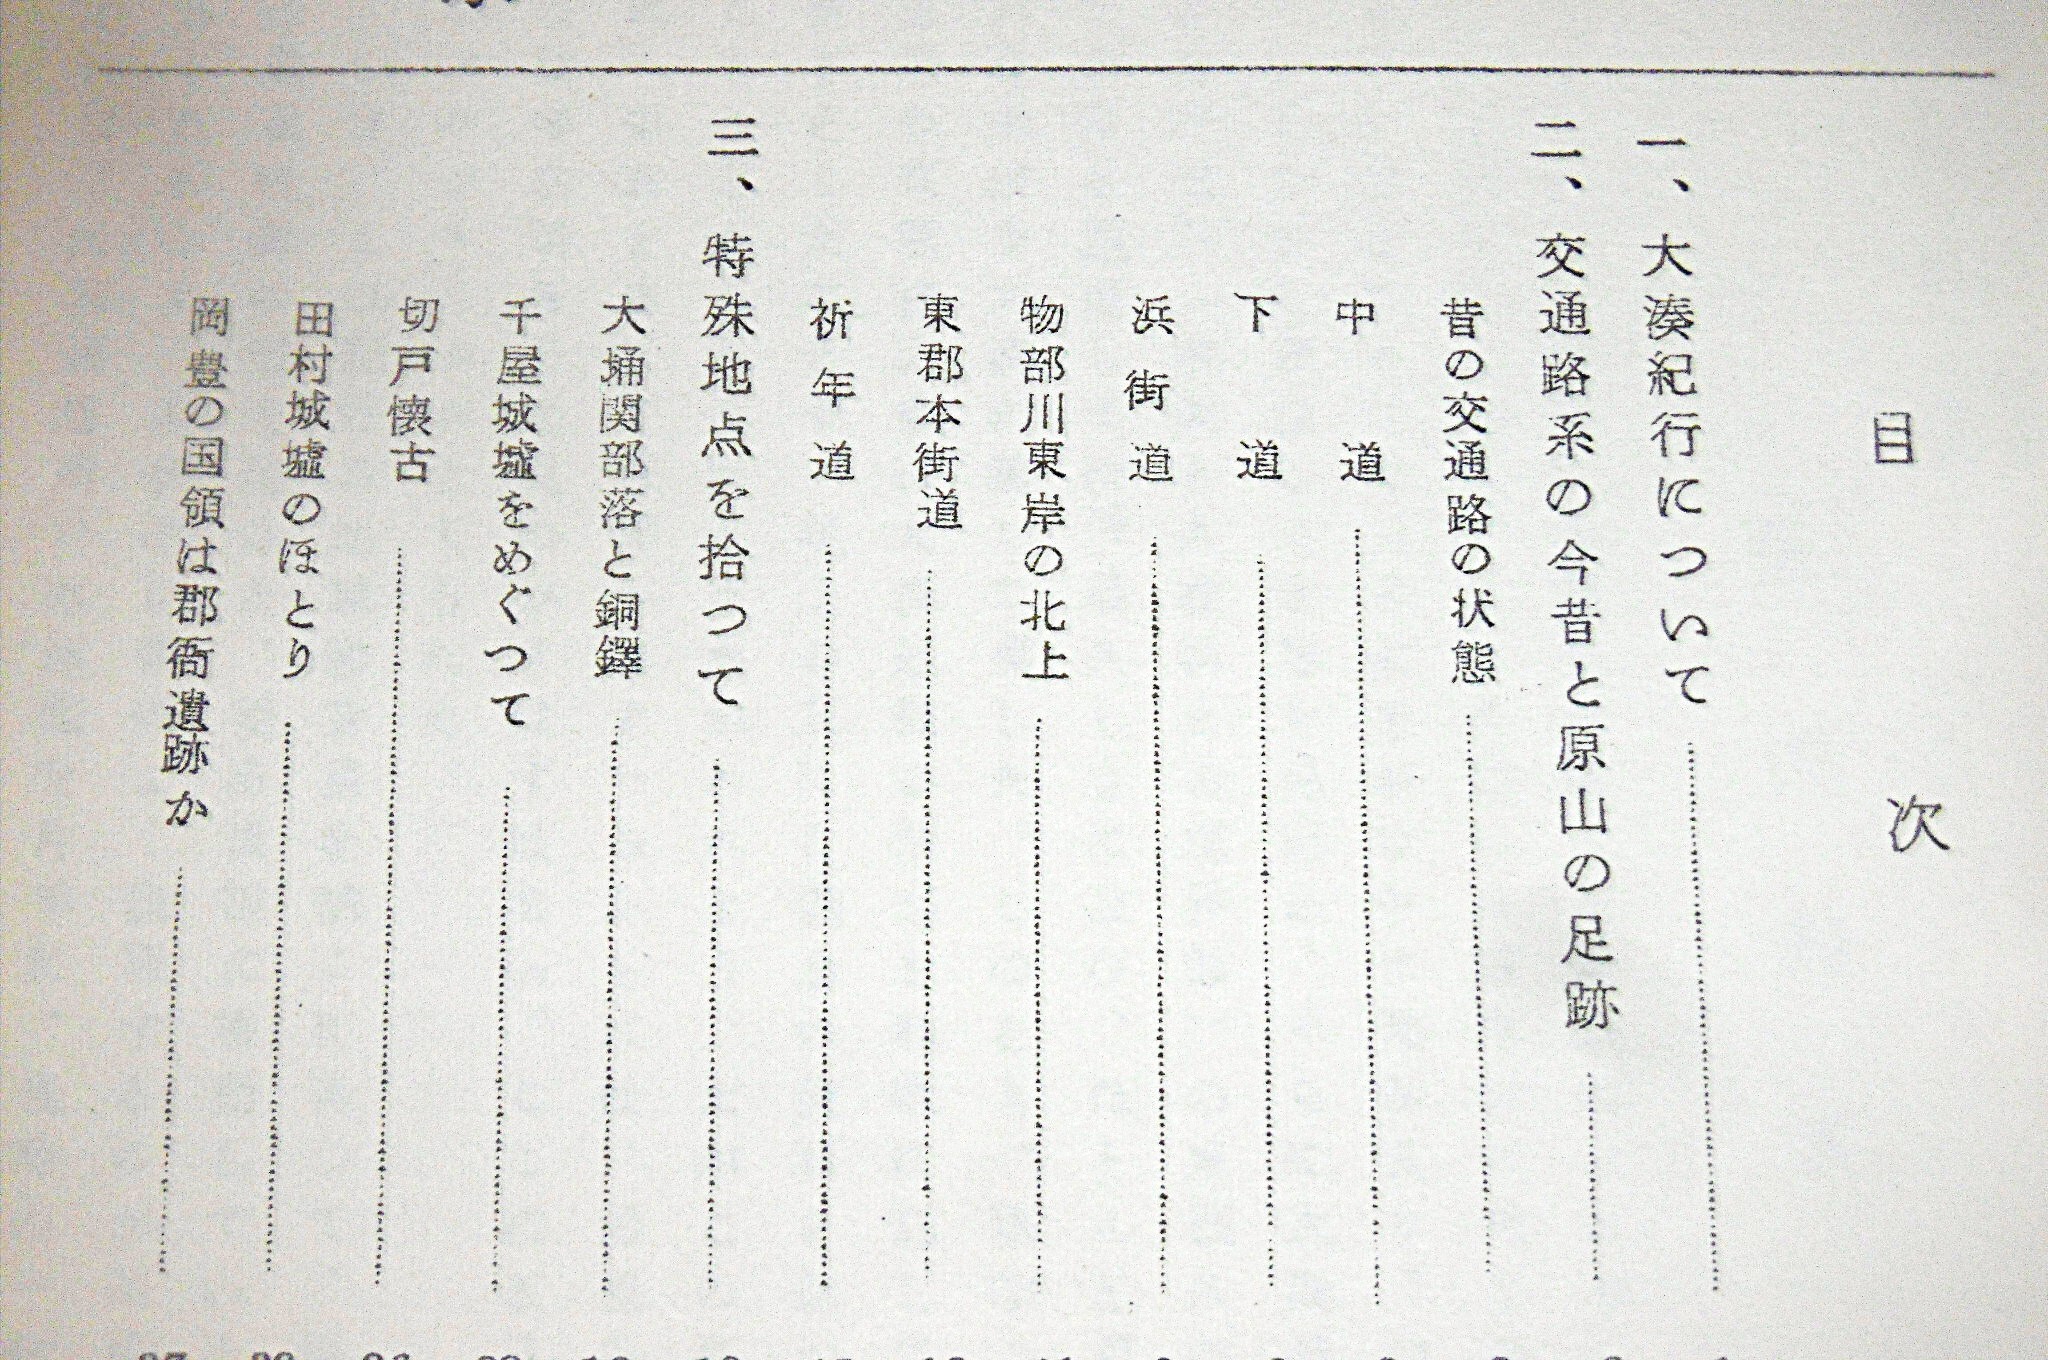 目次
一、大湊紀行について
二、交通路系の今昔と原山の足跡
昔の交通路の状態
中道
下道
浜街道
物部川東岸の北上
東郡本街道
祈年道
三、特殊地点を拾つて
大埇関部落と銅鐸
千屋城墟をめぐつて
切戸懐古
田村城墟のほとり
岡豊の国領は郡衙遺跡か